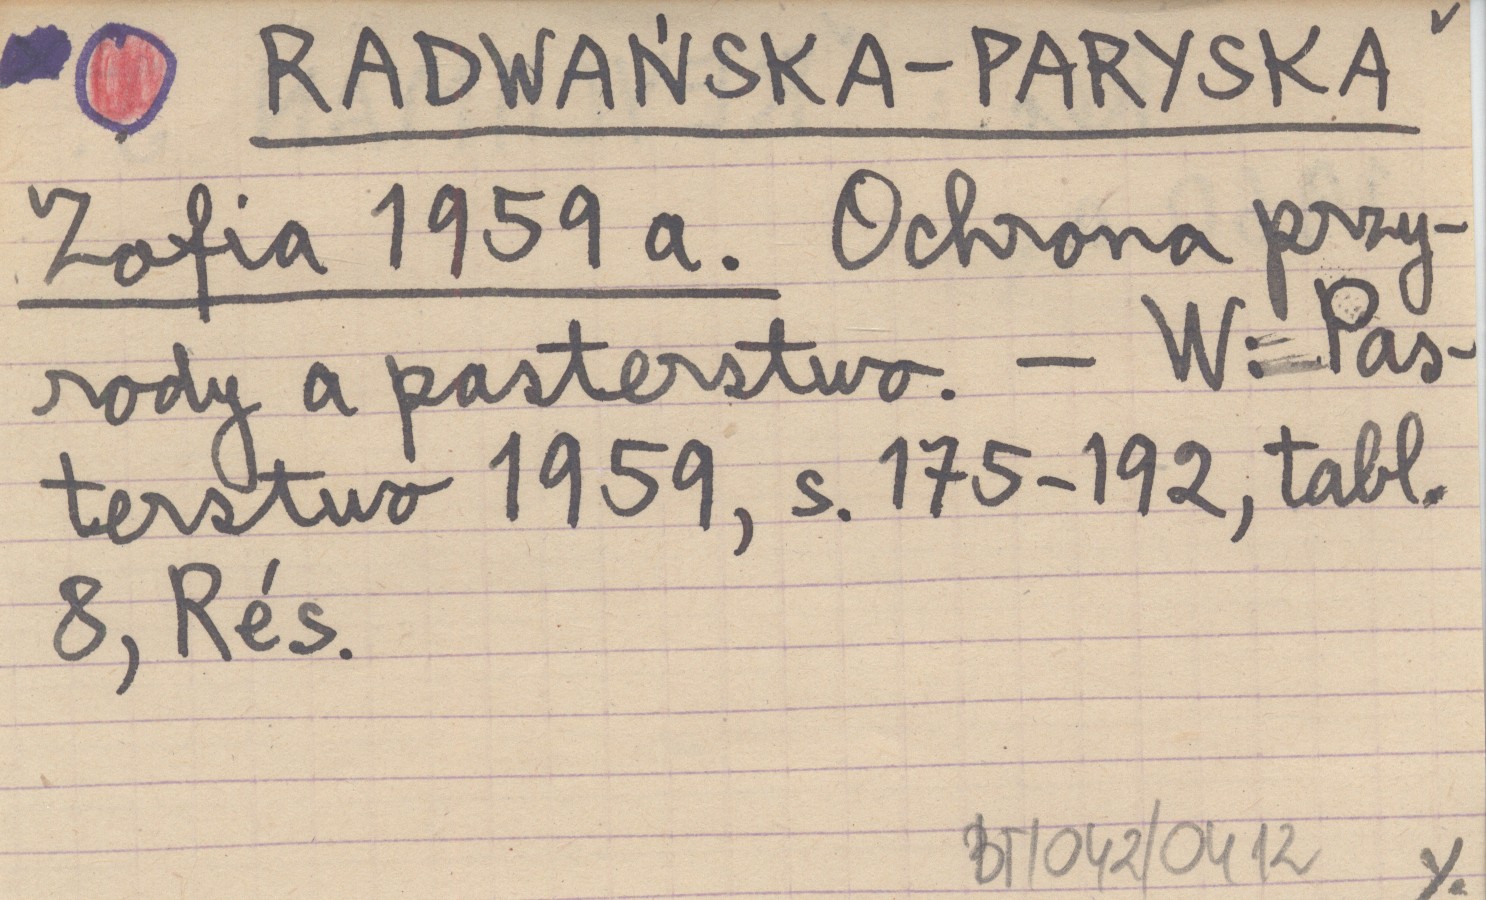 RADWAŃSKA-PARYSKA
Zofia 1959 a. Ochrona przy-
rody a pasterstwo. — W: Pas-
terstwo 1959, s. 175-192, tabl.
8, Rés.
BT/042/0412
y.